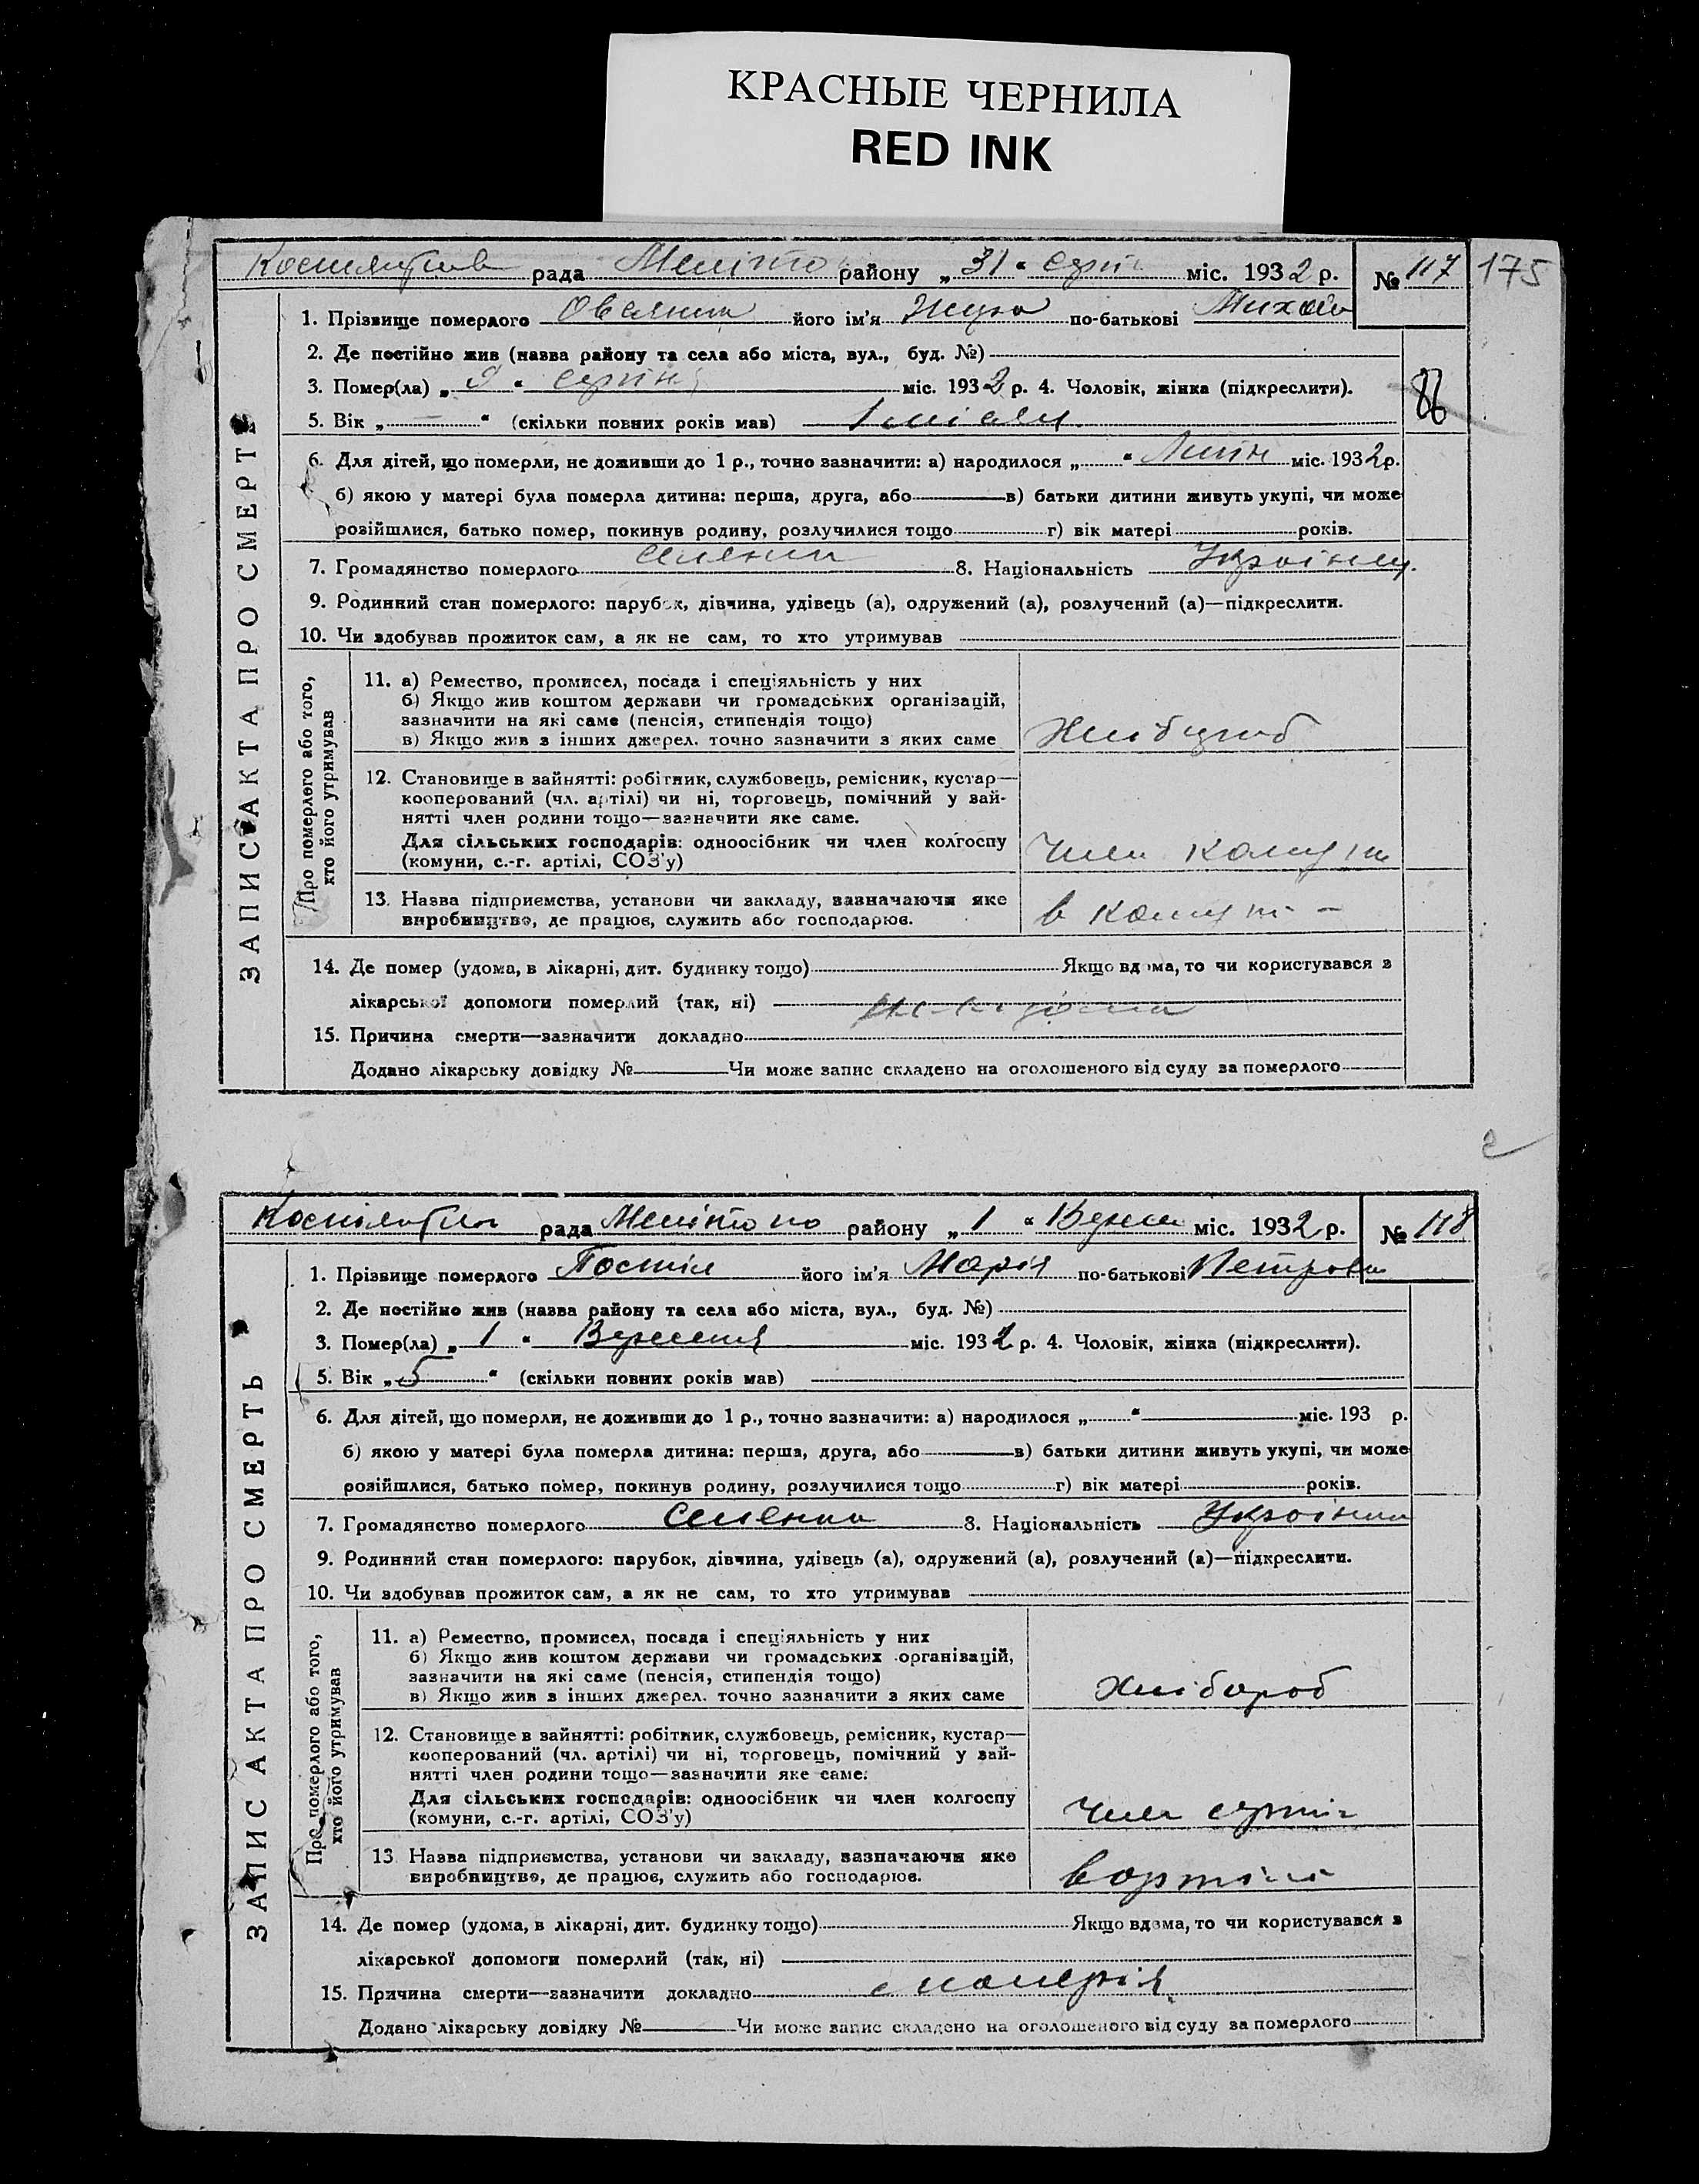 КРАСНЫЕ ЧЕРНИЛА
RED INK
рада Меліто району „31“ серп міс. 1932 р. № 117 175
1. Прізвище померлого його ім'я по-батькові Михайл
2. Де постійно жив (назва району та села або міста, вул., буд. №)
3. Помер(ла) „ “ серпня міс. 1932 р. 4. Чоловік, жінка (підкреслити).
86
5. Вік „—“ (скільки повних років мав) 1 місяц
6. Для дітей, що померли, не доживши до 1 р., точно зазначити: а) народилося „ “ Липн міс. 1932 р.
б) якою у матері була померла дитина: перша, друга, або в) батьки дитини живуть укупі, чи може
розійшлися, батько помер, покинув родину, розлучилися тощо г) вік матері років.
7. Громадянство померлого селянин 8. Національність Українец
9. Родинний стан померлого: парубок, дівчина, удівець (а), одружений (а), розлучений (а)—підкреслити.
10. Чи здобував прожиток сам, а як не сам, то хто утримував
ЗАПИС АКТА ПРО СМЕРТЬ
Про померлого або того,
хто його утримував
11. а) Ремество, промисел, посада і спеціяльність у них
б) Якщо жив коштом держави чи громадських організацій,
зазначити на які саме (пенсія, стипендія тощо)
в) Якщо жив з інших джерел. точно зазначити з яких саме Хлібороб
12. Становище в зайнятті: робітник, службовець, ремісник, кустар—
кооперований (чл. артілі) чи ні, торговець, помічний у зай-
нятті член родини тощо—зазначити яке саме.
Для сільських господарів: одноосібник чи член колгоспу
(комуни, с.-г. артілі, СОЗ'у) член комуни
13. Назва підприємства, установи чи закладу, зазначаючи яке
виробництво, де працює, служить або господарює. в комун
14. Де помер (удома, в лікарні, дит. будинку тощо) Якщо вдома, то чи користувався з
лікарської допомоги померлий (так, ні)
15. Причина смерти—зазначити докладно
Додано лікарську довідку № Чи може запис складено на оголошеного від суду за померлого
рада Мелітопо району „1“ Вересн міс. 1932 р. № 118
1. Прізвище померлого Постіл його ім'я Марія по-батькові Петровн
2. Де постійно жив (назва району та села або міста, вул., буд. №)
3. Помер(ла) „1“ Вересня міс. 1932 р. 4. Чоловік, жінка (підкреслити).
5. Вік „5“ (скільки повних років мав)
6. Для дітей, що померли, не доживши до 1 р., точно зазначити: а) народилося „ “ міс. 193 р.
б) якою у матері була померла дитина: перша, друга, або в) батьки дитини живуть укупі, чи може
розійшлися, батько помер, покинув родину, розлучилися тощо г) вік матері років.
7. Громадянство померлого Селянка 8. Національність Українка
9. Родинний стан померлого: парубок, дівчина, удівець (а), одружений (а), розлучений (а)—підкреслити.
10. Чи здобував прожиток сам, а як не сам, то хто утримував
ЗАПИС АКТА ПРО СМЕРТЬ
Про померлого або того,
хто його утримував
11. а) Ремество, промисел, посада і спеціяльність у них
б) Якщо жив коштом держави чи громадських організацій,
зазначити на які саме (пенсія, стипендія тощо)
в) Якщо жив з інших джерел. точно зазначити з яких саме Хлібороб
12. Становище в зайнятті: робітник, службовець, ремісник, кустар—
кооперований (чл. артілі) чи ні, торговець, помічний у зай-
нятті член родини тощо—зазначити яке саме.
Для сільських господарів: одноосібник чи член колгоспу
(комуни, с.-г. артілі, СОЗ'у) член артіл
13. Назва підприємства, установи чи закладу, зазначаючи яке
виробництво, де працює, служить або господарює. в артілі
14. Де помер (удома, в лікарні, дит. будинку тощо) Якщо вдома, то чи користувався з
лікарської допомоги померлий (так, ні)
15. Причина смерти—зазначити докладно малерія
Додано лікарську довідку № Чи може запис складено на оголошеного від суду за померлого